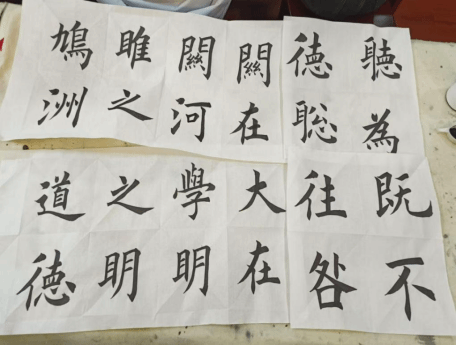 聽徳
為聡
關關雎鳩
在河之洲
既往
不咎
大學之道
在明明徳